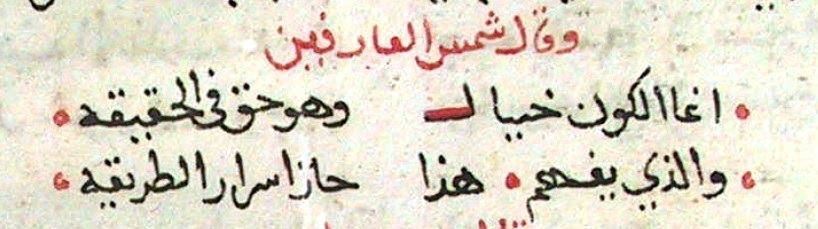 وقال شمس العارفين
• انما الكون خيال وهو حق في الحقيقه •
• والذي يفهم • هذا حاز اسرار الطريقه •